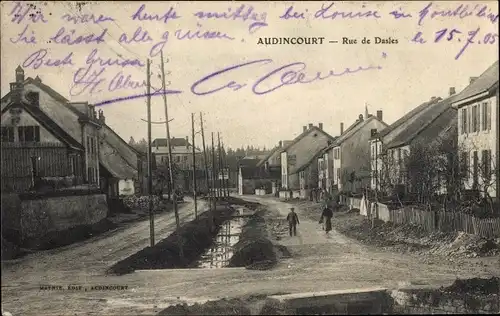 Wir waren heute Mittag bei Louise in Montbéliard
Sie lässt alle grüssen.
d. 15.7.05
Beste Grüsse
AUDINCOURT — Rue de Dasles
MATHIE, EDIT, AUDINCOURT